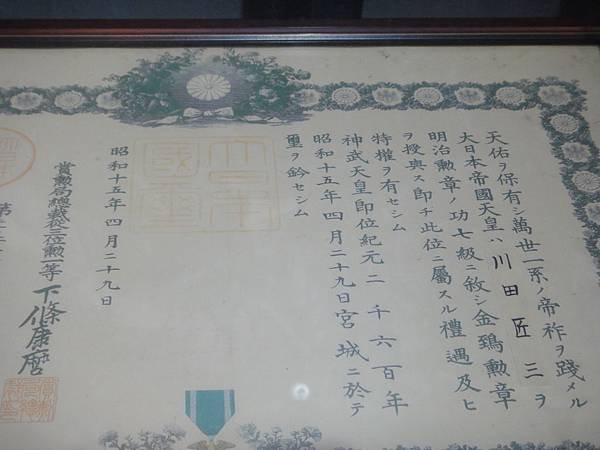 天佑ヲ保有シ萬世一系ノ帝祚ヲ踐メル
大日本帝國天皇ハ川田匠三ヲ
明治勲章ノ功七級ニ敘シ金鵄勲章
ヲ授與ス卽チ此位ニ屬スル禮遇及ヒ
特權ヲ有セシム
神武天皇卽位紀元二千六百年
昭和十五年四月二十九日宮城ニ於テ
璽ヲ鈐セシム
昭和十五年四月二十九日
賞勲局總裁從三位勲一等下條康麿
第